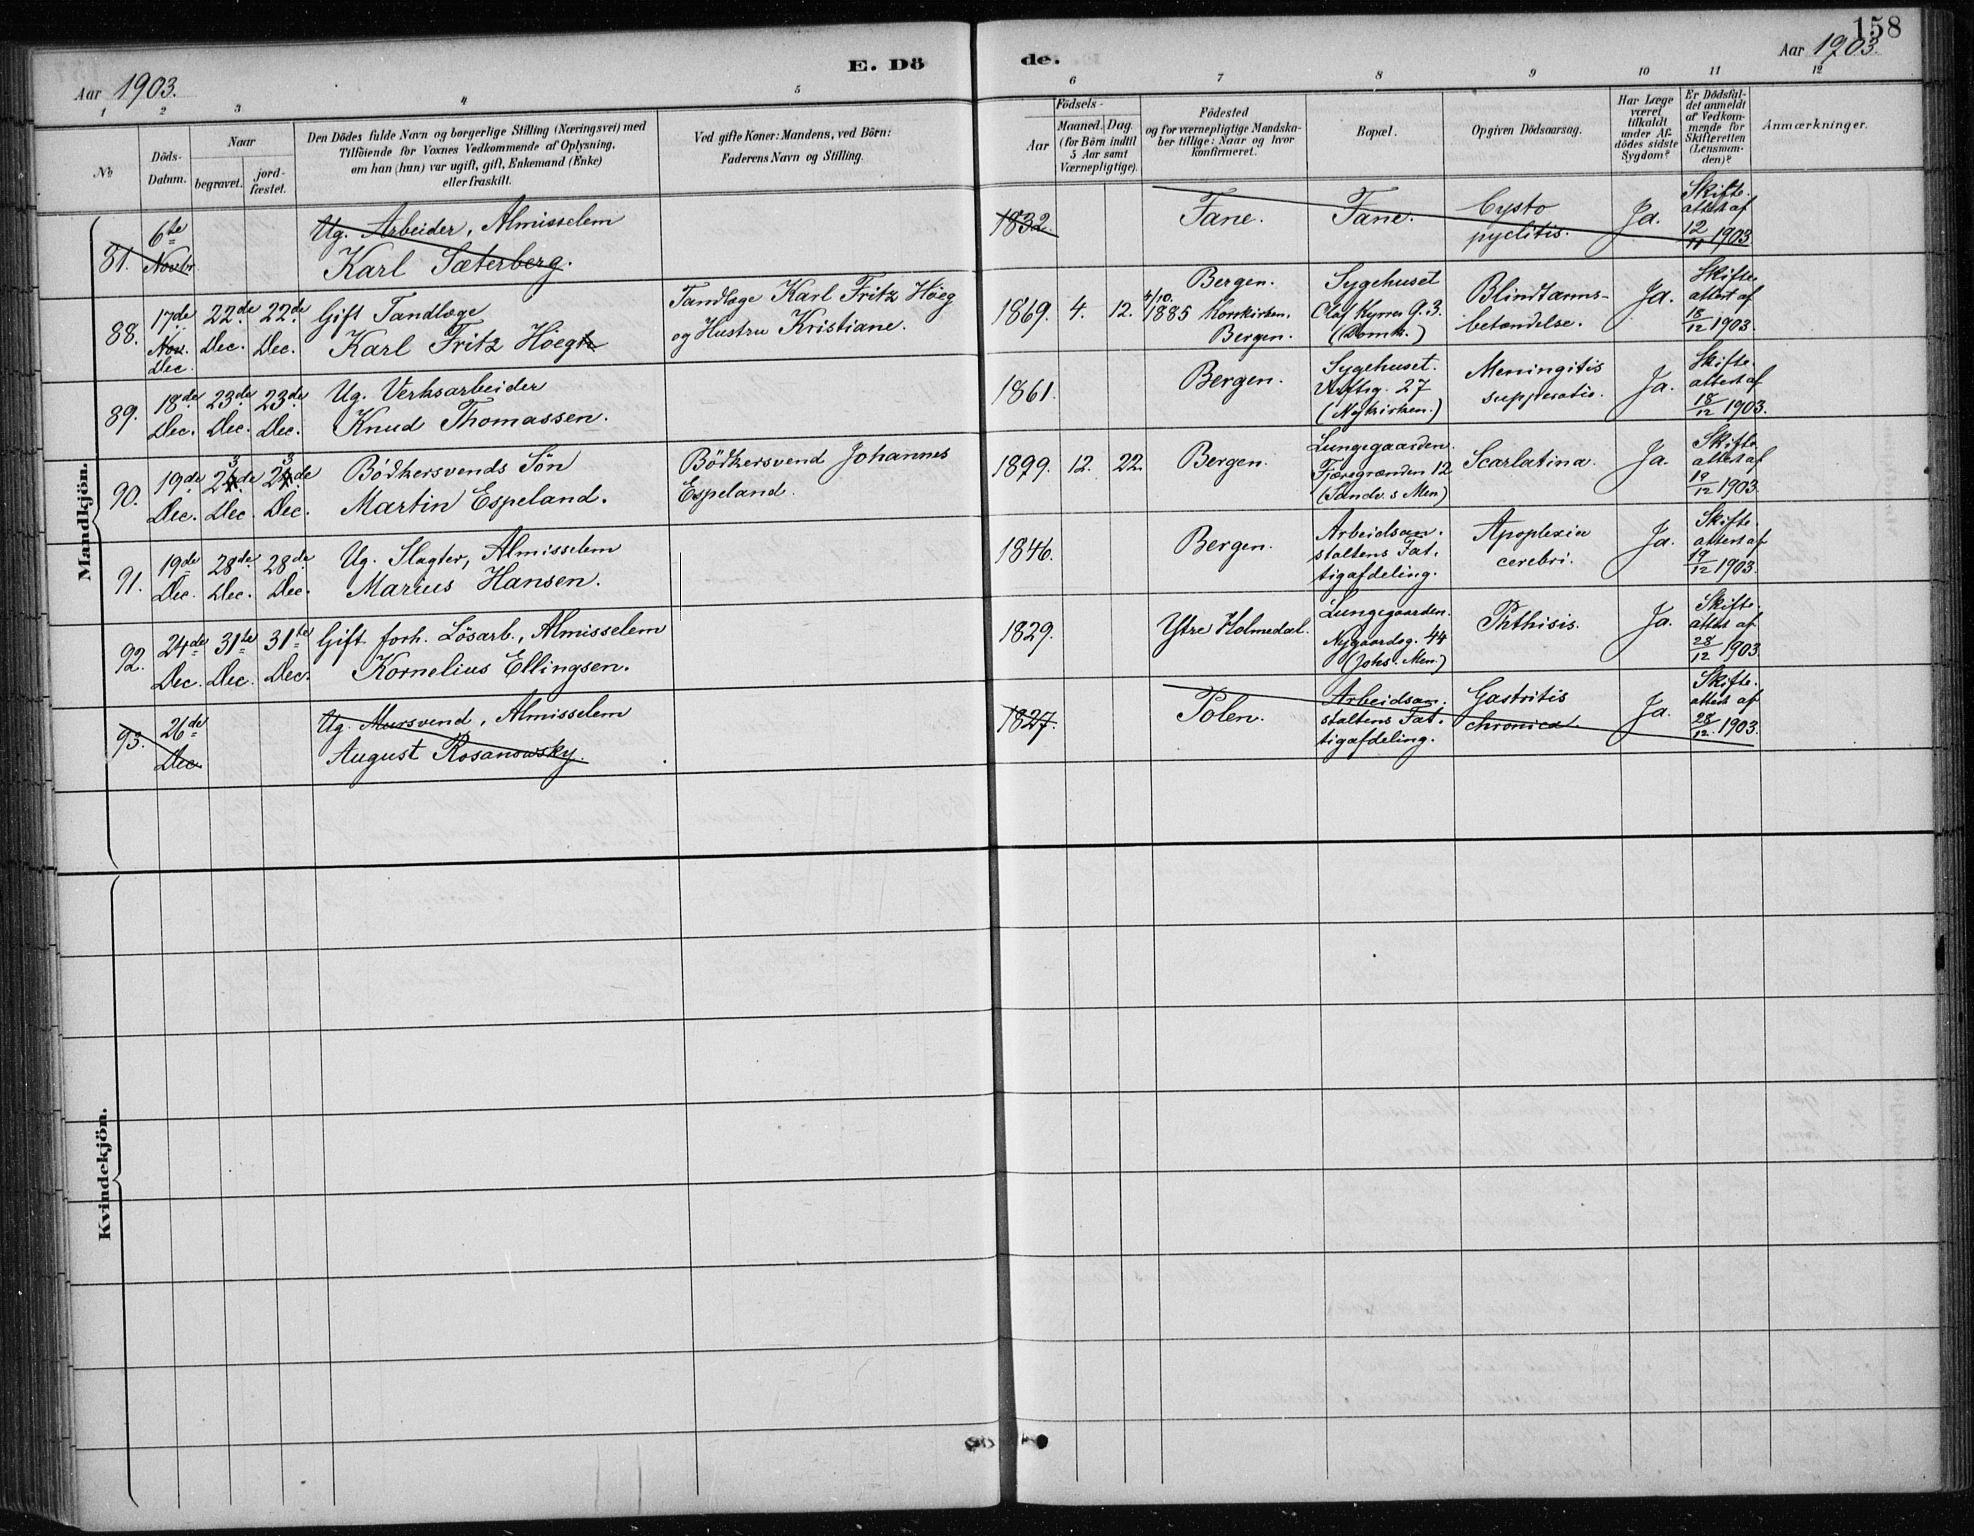 158
E. Dö
de.
Aar 1903.
Aar 1903.
1 2 3 4 5 6 7 8 9 10 11 12
No
Döds-
Datum.
Naar
begravet.
jord-
fæstet.
Den Dödes fulde Navn og borgerlige Stilling (Næringsvei) med
Tilföiende for Voxnes Vedkommende af Oplysning,
om han (hun) var ugift, gift, Enkemand (Enke)
eller fraskilt.
Ved gifte Koner: Mandens, ved Börn:
Faderens Navn og Stilling.
Födsels-
Aar
Maaned. Dag
(for Börn indtil
5 Aar samt
Værnepligtige).
Födested
og for værnepligtige Mandska-
ber tillige: Naar og hvor
konfirmeret.
Bopæl.
Opgiven Dödsaarsag.
Har Læge
været
tilkaldt
under Af-
dödes sidste
Sygdom?
Er Dödsfal-
det anmeldt
af Vedkom-
mende for
Skifteretten
(Lensman-
den)?
Anmærkninger.
Mandkjön.
81.
6te
Novbr
Ug. Arbeider, Almisselem
Karl Sæterberg.
1832.
Fane.
Fane.
Cysto
pyelitis.
Ja.
Skifte.
attest af
12/11 1903
88.
17de
Nov.
Dec.
22de
Dec.
22de
Dec.
Gift Tandlæge
Karl Fritz Höegh
Tandlæge Karl Fritz Höeg
og Hustru Kristiane.
1869. 4. 12.
Bergen.
4/10.
1885 Korskirken.
Bergen.
Sygehuset
Olaf Kyrres G. 3.
(Domk.)
Blindtarms-
betændelse.
Ja.
Skifte.
attest af
18/12 1903.
89.
18de
Dec.
23de
Dec.
23de
Dec.
Ug. Verksarbeider
Knud Thomassen.
1861.
Bergen.
Sygehuset.
27
(Nykirken.)
Meningitis
Ja.
Skifte.
attest af
18/12 1903.
90.
19de
Dec.
3
24de
Dec.
3
24de
Dec.
Bödkersvends Sön
Martin Espeland.
Bödkersvend Johannes
Espeland.
1899. 12. 22.
Bergen.
Lungegaarden.
Fjæregrænden 12
(Sandv.s Men)
Scarlatina.
Ja.
Skifte
attest af
19/12 1903.
91.
19de
Dec.
28de
Dec.
28de
Dec.
Ug. Slagter, Almisselem
Marius Hansen.
1846.
Bergen.
Arbeidsan.
staltens Fat.
tigafdeling.
Apoplexia
cerebri.
Ja.
Skifte.
attest af
19/12 1903.
92.
24de
Dec.
31te
Dec.
31te
Dec.
Gift forh. Lösarb., Almisselem
Kornelius Ellingsen.
1829.
Ytre Holmedal.
Lungegaarden.
Nygaardsg. 44
(Johs. Men.)
Phthisis.
Ja.
Skifte.
attest af
28/12 1903
93.
26de
Dec
Ug. Mursvend, Almisselem
August Rosanowsky.
1827.
Polen.
Arbeidsan.
staltens Fat.
tigafdeling.
Gastritis
chronica
Ja.
Skifte.
attest af
28/12. 1903.
Kvindekjön.